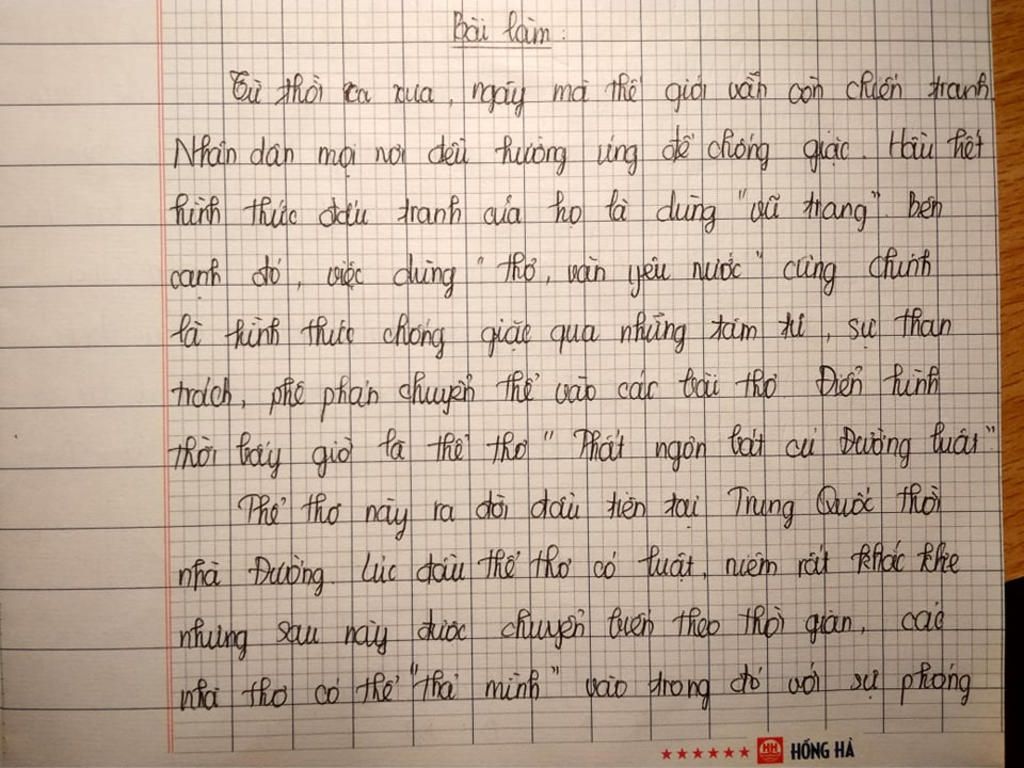 Bài làm:
Từ thời xa xưa, ngày mà thế giới vẫn còn chiến tranh.
Nhân dân mọi nơi đều hưởng ứng để chống giặc. Hầu hết
hình thức đấu tranh của họ là dùng "vũ trang". Bên
cạnh đó, việc dùng "thơ, văn yêu nước" cũng chính
là hình thức chống giặc qua những tâm tư, sự than
trách, phê phán chuyển thể vào các bài thơ. Điển hình
thời bấy giờ là thể thơ "Thất ngôn bát cú Đường luật"
Thể thơ này ra đời đầu tiên tại Trung Quốc thời
nhà Đường. Lúc đầu thể thơ có luật, niêm rất khắc khe
nhưng sau này được chuyển biến theo thời gian, các
nhà thơ có thể "thả mình" vào trong đó với sự phóng
HH HỒNG HÀ